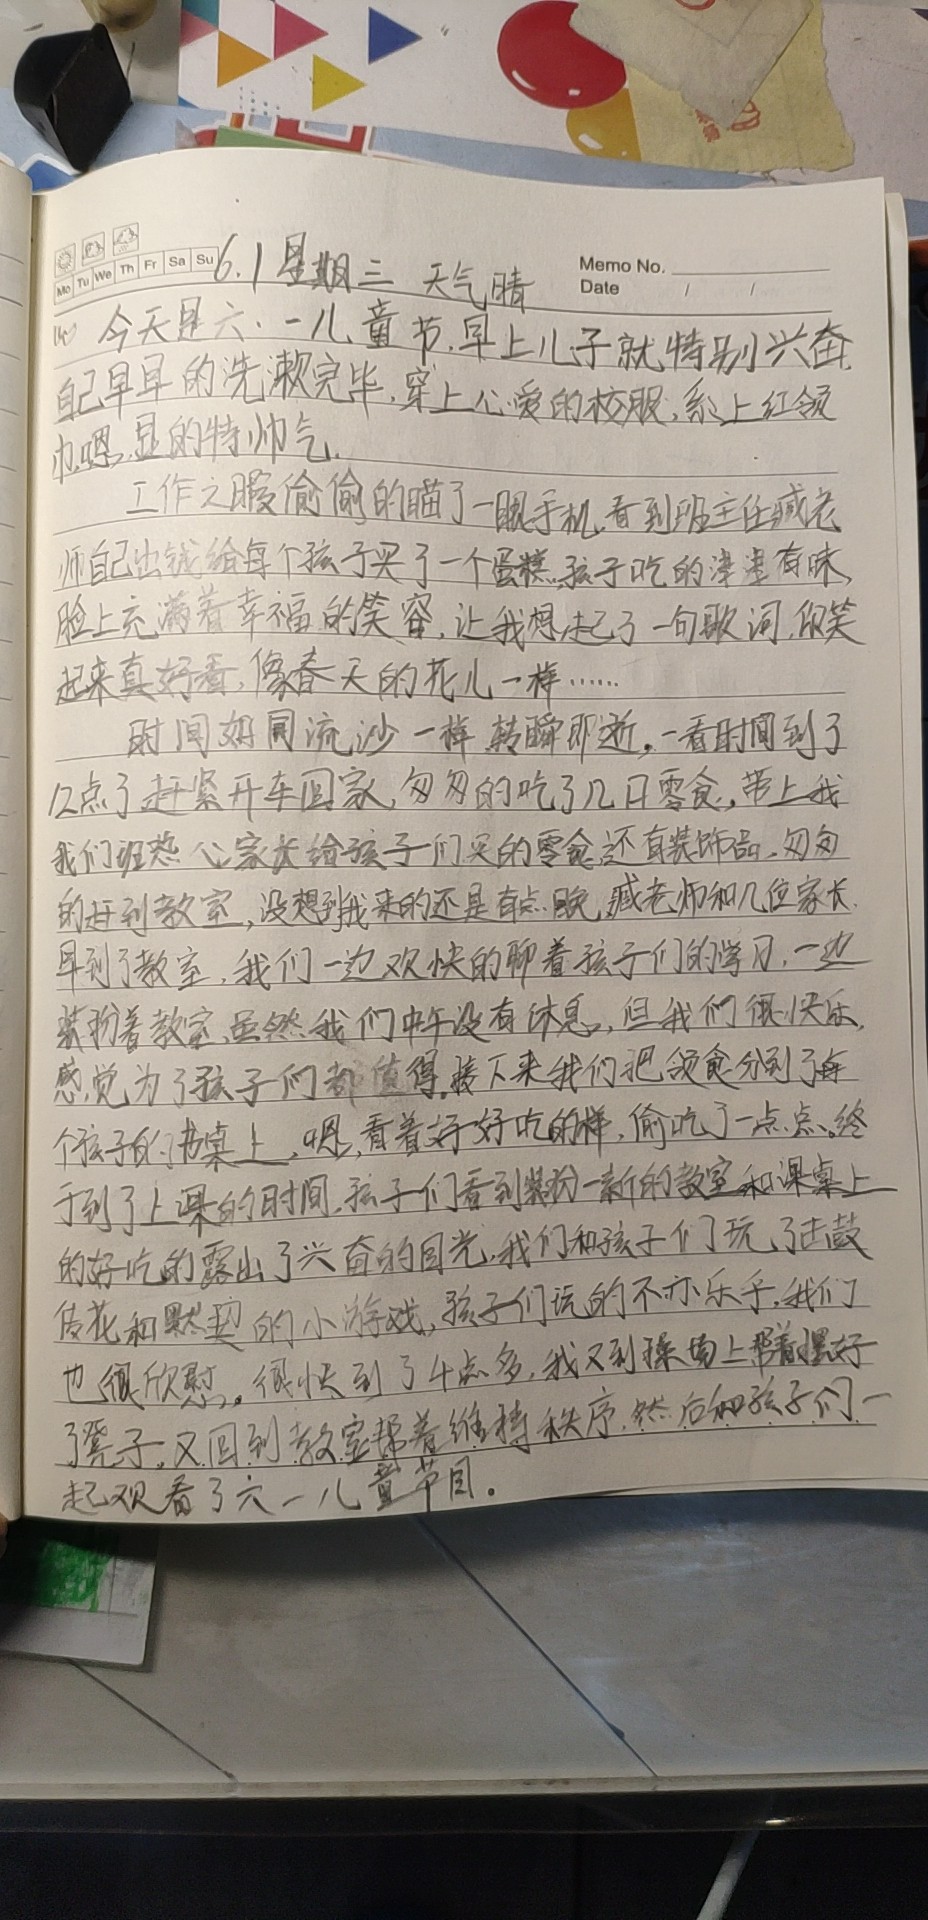 Mo Tu We Th Fr Sa Su
6.1 星期三 天气晴
Memo No.
Date / /
今天是六·一儿童节,早上儿子就特别兴奋,
自己早早的洗漱完毕,穿上心爱的校服,系上红领
巾,嗯,显的特帅气.
工作之暇偷偷的瞄了一眼手机,看到班主任臧老
师自己出钱给每个孩子买了一个蛋糕,孩子吃的津津有味,
脸上充满着幸福的笑容,让我想起了一句歌词,你笑
起来真好看,像春天的花儿一样……
时间如同流沙一样,转瞬即逝,一看时间到了
12点了赶紧开车回家,匆匆的吃了几口零食,带上我
我们班热心家长给孩子们买的零食还有装饰品,匆匆
的赶到教室,没想到我来的还是有点晚,臧老师和几位家长
早到了教室,我们一边欢快的聊着孩子们的学习,一边
装扮着教室,虽然我们中午没有休息,但我们很快乐,
感觉为了孩子们都值得,接下来我们把零食分到了每
个孩子的书桌上,嗯,看着好好吃的样,偷吃了一点点。终
于到了上课的时间,孩子们看到装扮一新的教室和课桌上
的好吃的露出了兴奋的目光,我们和孩子们玩了击鼓
传花和默契的小游戏,孩子们玩的不亦乐乎,我们
也很欣慰。很快到了4点多,我又到操场上帮着摆好
了凳子,又回到教室帮着维持秩序,然后和孩子们一
起观看了六一儿童节目。